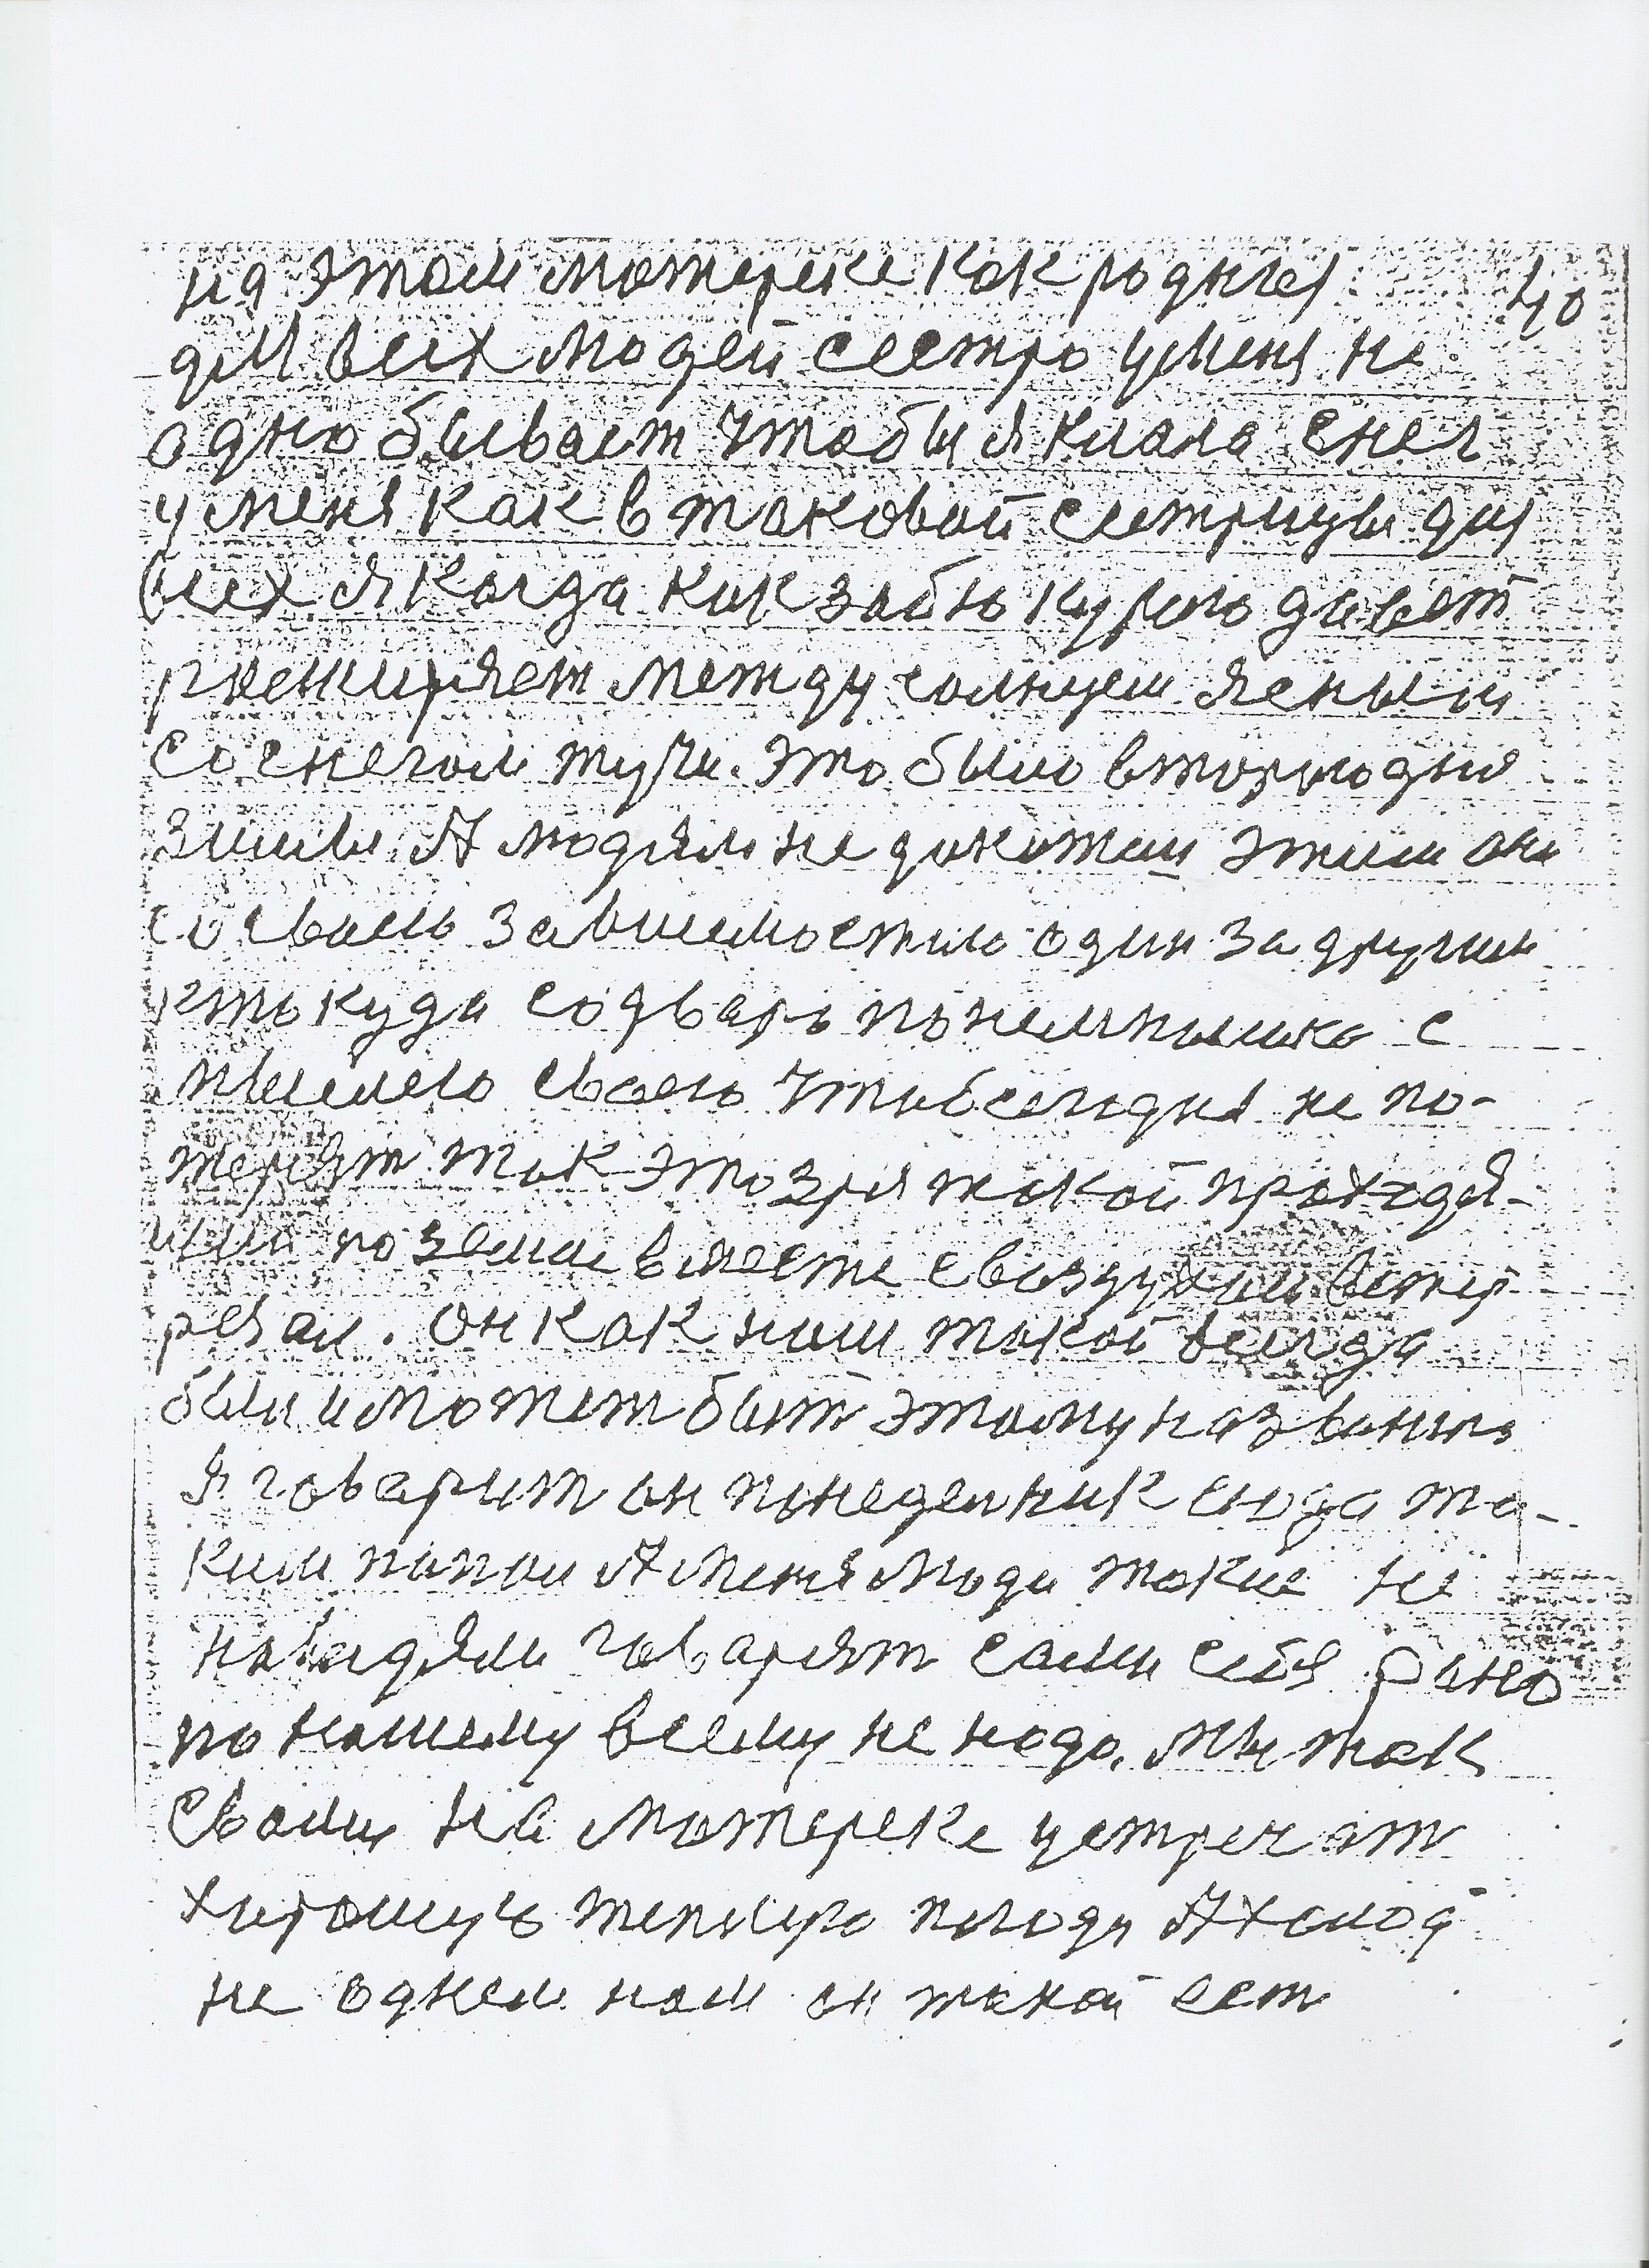 на этом материке как родная 40
для всех людей сестра у меня не
одно бывает чтобы я клала снег
у меня как в таковой сестрицы для
всех я когда как
между солнцем ясным
со снегом тучи. Это было второго дня
зимы А людям не этим они
со своею зависимостию один за другим
кто куда со двора понемножко с
мыслею своею чтоб сегодня не по-
терять так это зря такой проходя-
по земле вместе с воздухом ветер
. Он как ним такой всегда
был и может быть этому названия
я говорит он понеделник сюда та-
ким попал А меня люди такие не
говорят сами себя Рано
по нашему всему не надо. Мы так
своим на материке устречат
хорошую погоду А холод
не однем нам он такой ест